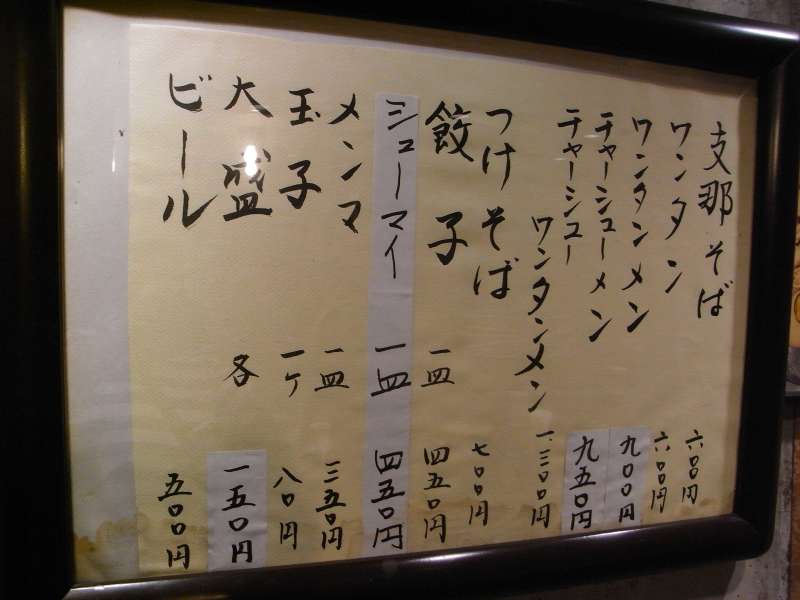 支那そば 六〇〇円
ワンタン 六〇〇円
ワンタンメン 九〇〇円
チャーシューメン 九五〇円
チャーシュー
ワンタンメン 一、三〇〇円
つけそば 七〇〇円
餃子 一皿 四五〇円
シューマイ 一皿 四五〇円
メンマ 一皿 三五〇円
玉子 一ケ 八〇円
大盛 各 一五〇円
ビール 五〇〇円